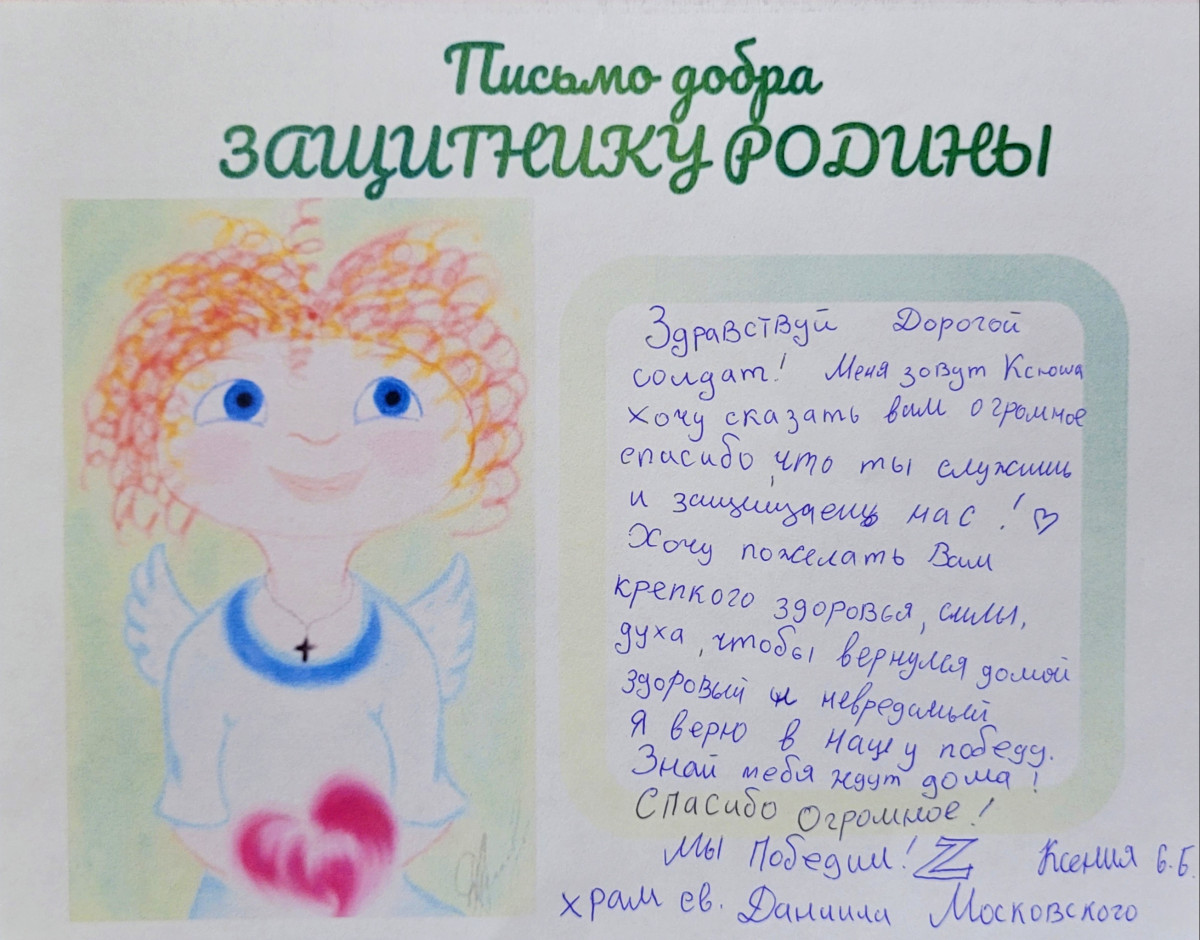 Письмо добра
ЗАЩИТНИКУ РОДИНЫ
Здравствуй Дорогой
солдат! Меня зовут Ксюша
хочу сказать вам огромное
спасибо, что ты служишь
и защищаешь нас!
Хочу пожелать Вам
крепкого здоровья, силы,
духа, чтобы вернулся домой
здоровый и невредимый
Я верю в нашу победу.
Знай тебя ждут дома!
Спасибо Огромное!
Мы Победим! Z Ксения 6.Б.
храм св. Даниила Московского